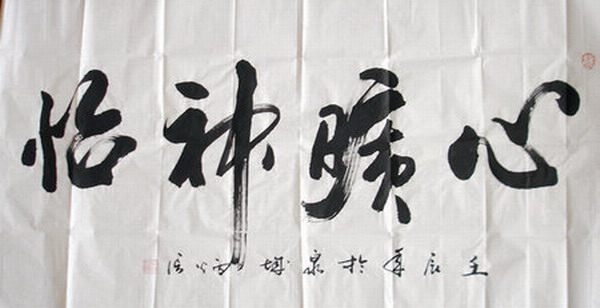 心曠神怡
壬辰於泉城